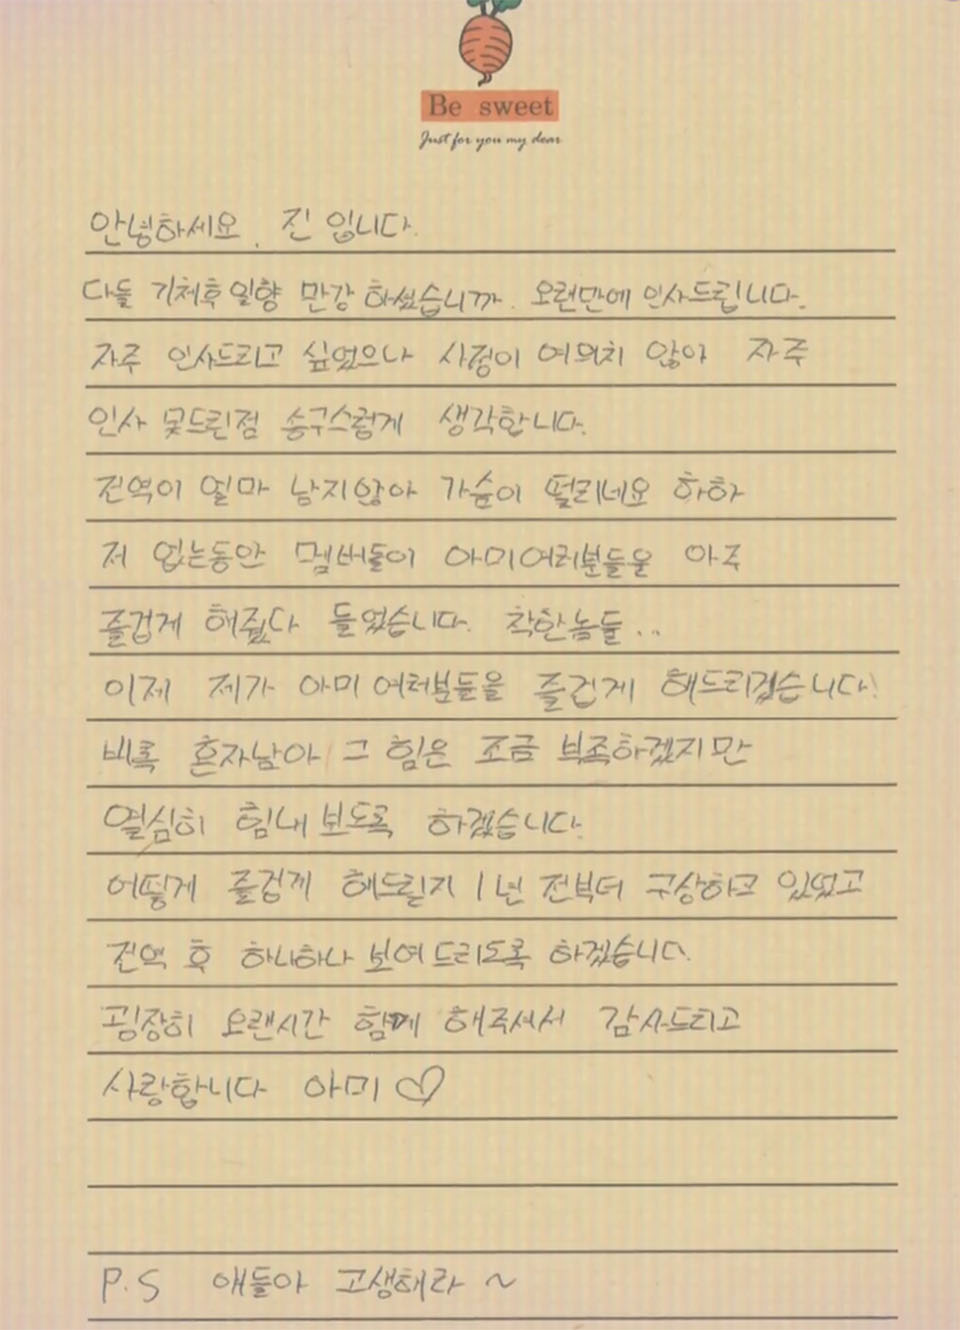 Be sweet
Just for you my dear
안녕하세요. 진 입니다.
다들 기체후일향 만강 하셨습니까. 오랜만에 인사드립니다.
자주 인사드리고 싶었으나 사정이 여의치 않아 자주
인사 못드린점 송구스럽게 생각합니다.
전역이 얼마 남지않아 가슴이 떨리네요 하하
저 없는동안 멤버들이 아미여러분들을 아주
즐겁게 해줬다 들었습니다. 착한놈들..
이제 제가 아미여러분들을 즐겁게 해드리겠습니다!
비록 혼자남아 그 힘은 조금 부족하겠지만
열심히 힘내보도록 하겠습니다.
어떻게 즐겁게 해드릴지 1년 전부터 구상하고 있었고
전역 후 하나하나 보여드리도록 하겠습니다.
굉장히 오랜시간 함께 해주셔서 감사드리고
사랑합니다 아미♡
P.S 애들아 고생해라~